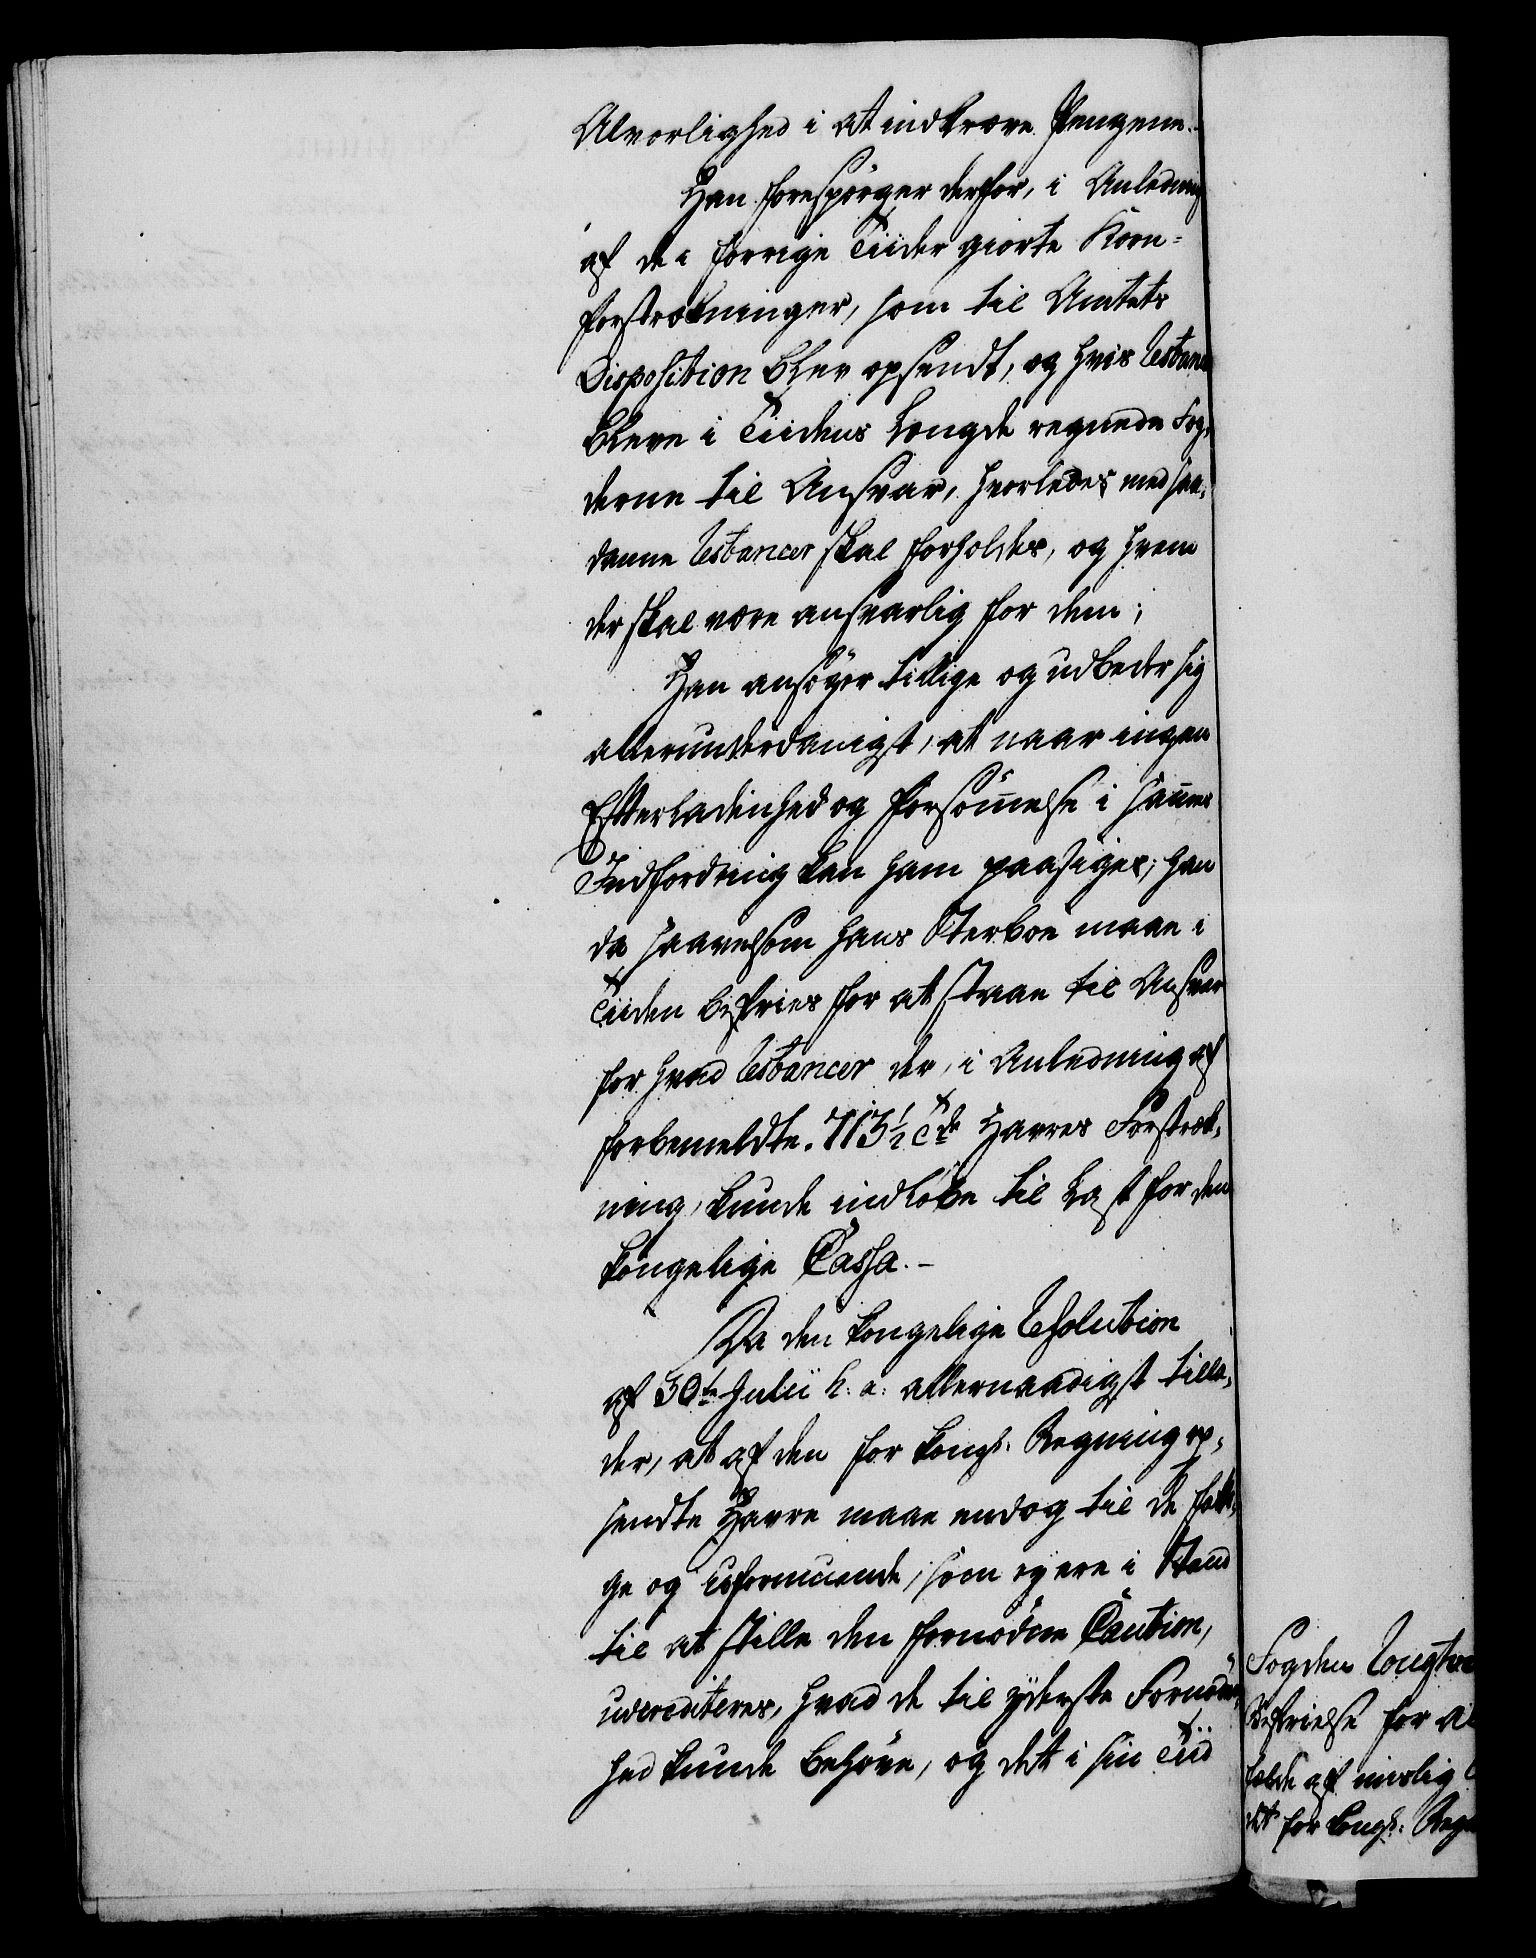 Alvorlighed i at indkræve Pengene.-
Han forespörger derfor, i Anledning
af de i forrige Tiider giorte Korn-
forstrækninger, som til Amtets
Disposition blev opsendt, og hvis Restancer
bleve i Tiidens Længde regnede Fog-
derne til Ansvar, hvorledes med saa-
danne Restancer skal forholdes, og hvem
der skal være ansvarlig for dem;
Han ansöger tillige og udbeder sig
allerunderdanigst, at naar ingen
Efterladenhed og Forsömelse i sammes
Indfordring kan ham paasiges; han
da saavelsom hans Sterboe maae i
Tiiden befries for at staae til Ansvar
for hvad Restancer der, i Anledning af
forbemeldte 713½ Tdr Havres Forstræk-
ning, kunde indlöbe til Last for den
kongelige Cassa.-
Da den kongelige Resolution
af 30te Julii h: a: allernaadigst tilla-
der, at af den for kongl. Regning op-
sendte Havre maae endog til de fatti-
ge og uformuende, som ey ere i Stand
til at stille den fornødne Caution,
udcrediteres, hvad de til yderste Fornöden-
hed kunde behöve, og det i sin Tiid
Fogden
Befrielse for
af mislig
det for kongl.